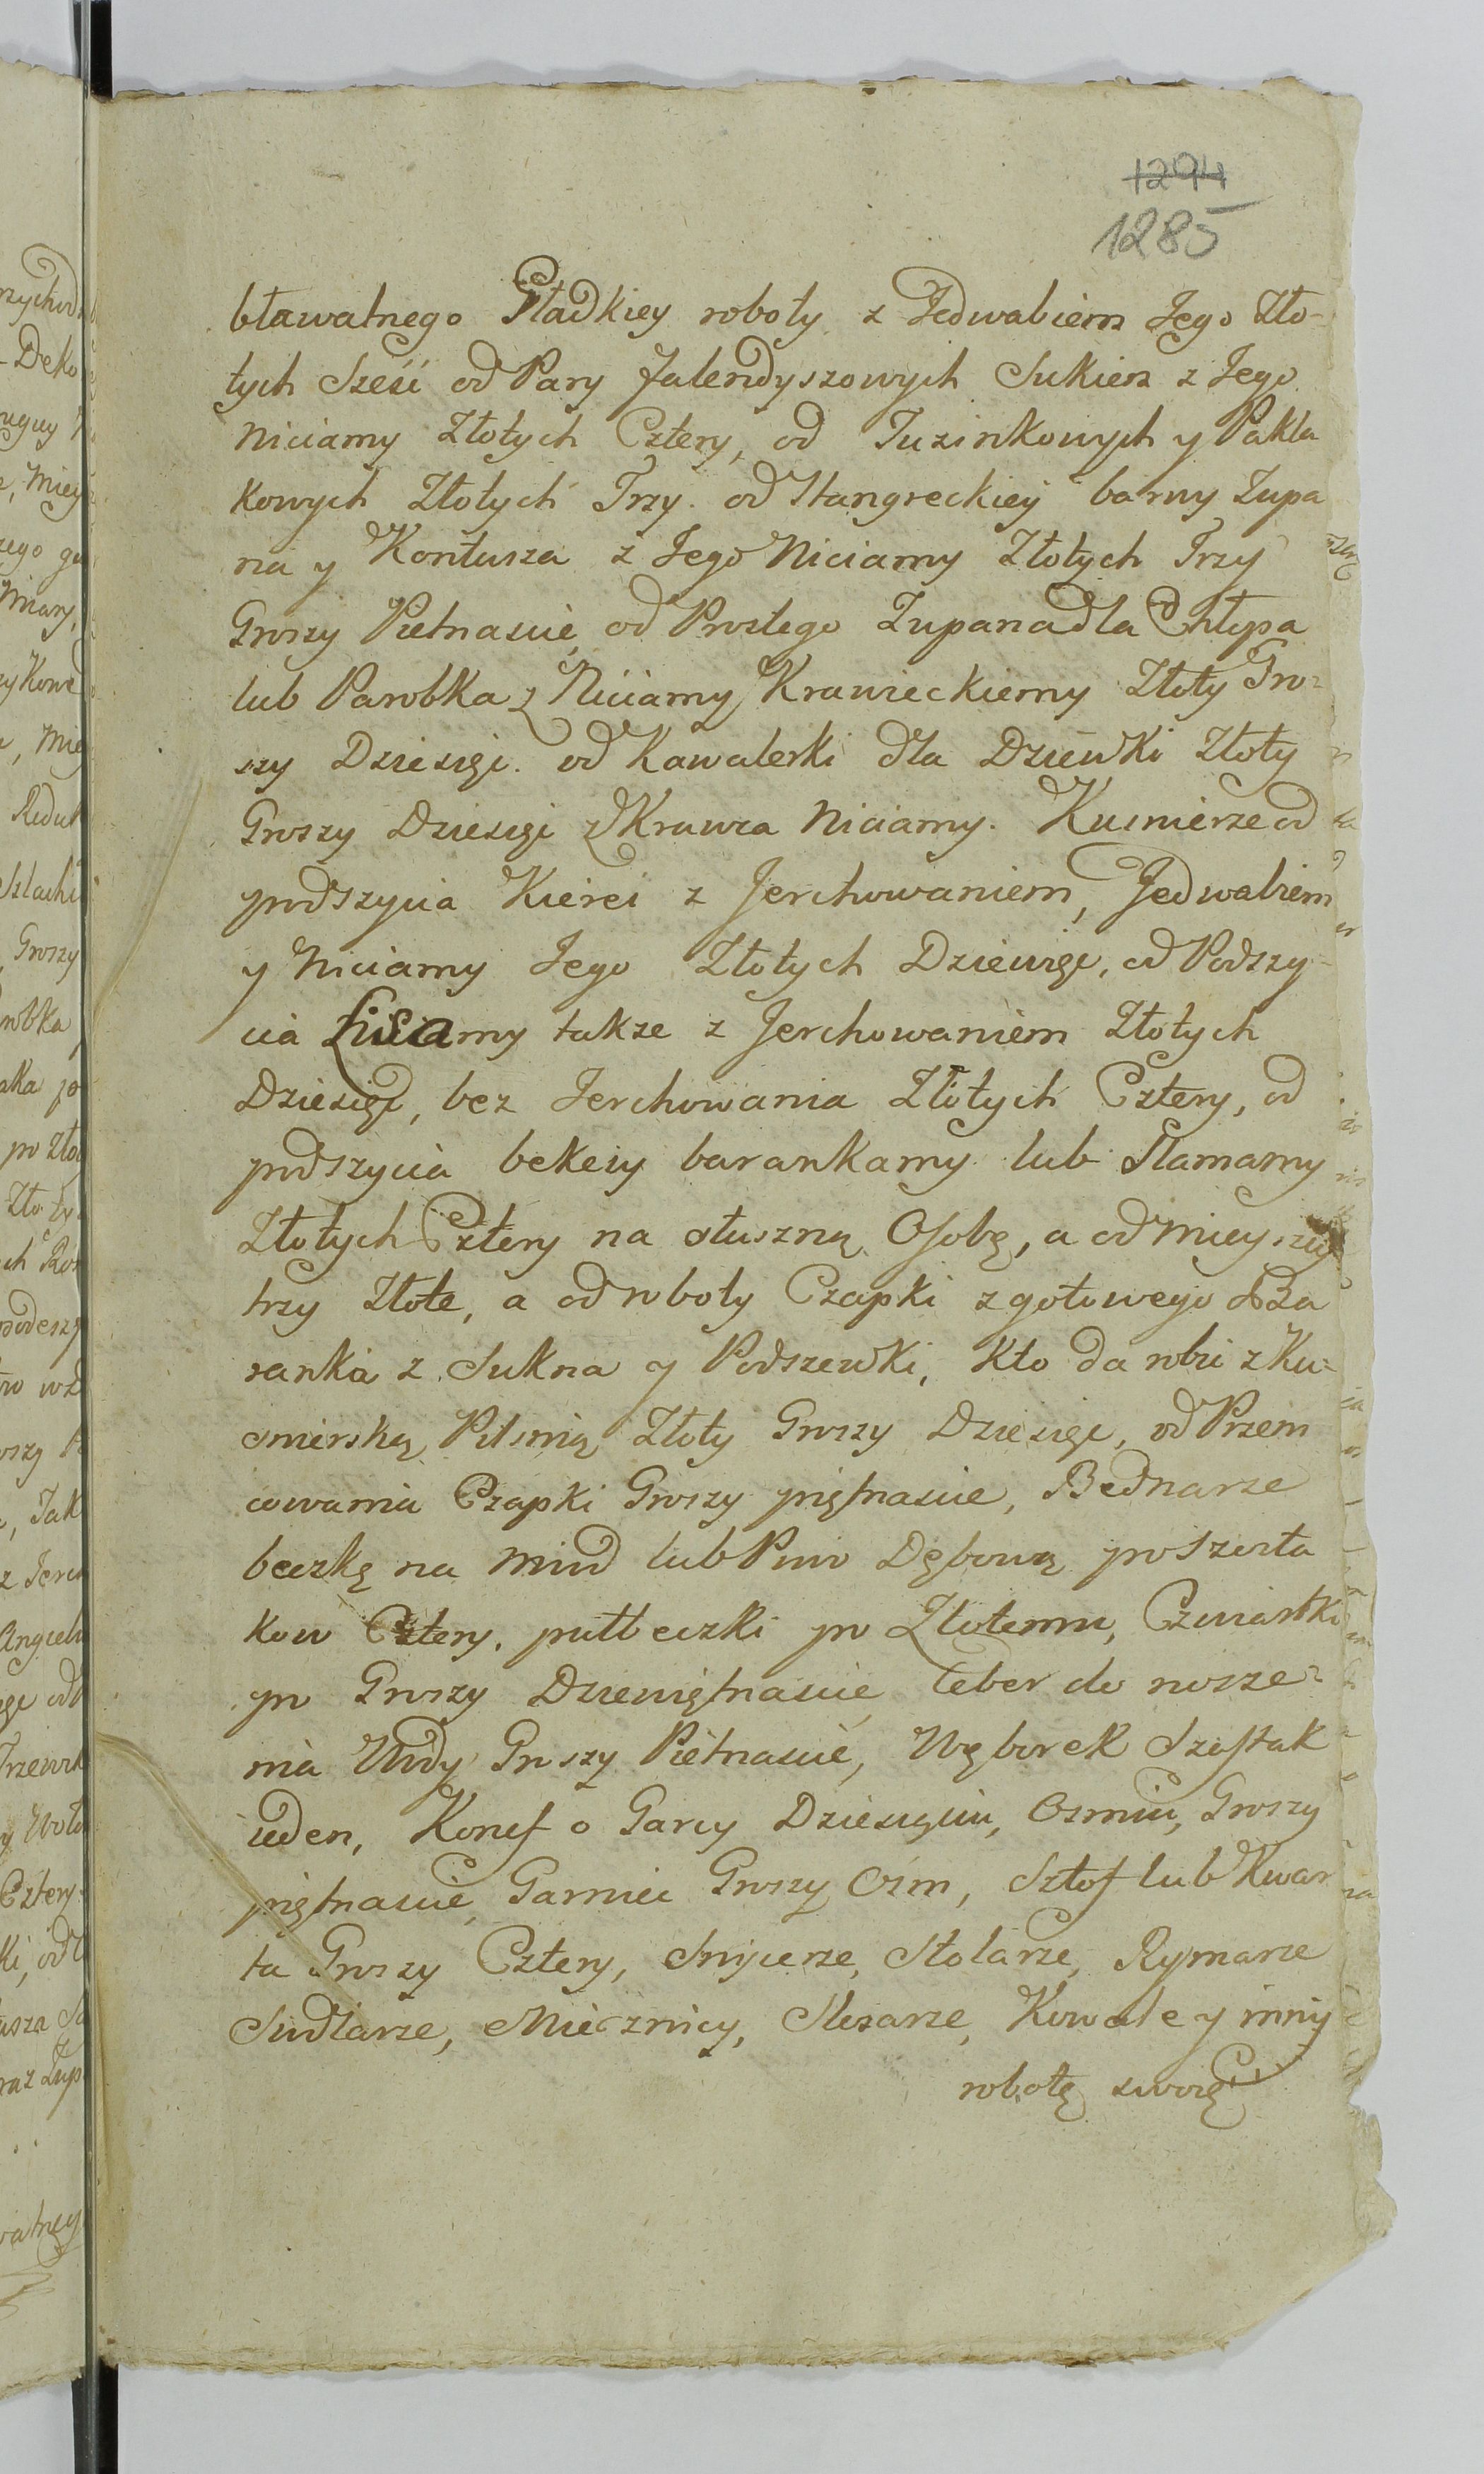 1294
1285
bławatnego Gładkiey roboty z Jedwabiem Jego Zło-
tych Sześć od Pary falendyszowych Sukien z Jego
Niciamy Złotych Cztery, od Tuzinkowych y Pakla
kowych Złotych Trzy. od Stangreckiey barwy Zupa
na y Kontusza z Jego Niciamy Złotych Trzy
Groszy Pietnascie, od Prostego Zupana dla Chłopa
lub Parobka z Niciamy Krawieckiemy Złoty Gro-
szy Dziesięć. od Kawalerki dla Dziewki Złoty
Groszy Dziesięć z Krawca Niciamy. Kusnierze od
podszycia Kierei z Jerchowaniem, Jedwabiem
y Niciamy Jego Złotych Dziewięć, od Podszy-
cia Lisamy takze z Jerchowaniem Złotych
Dziesięć, bez Jerchowania Złotych Cztery, od
podszycia bekeszy barankamy lub Slamamy
Złotych Cztery na słuszną Osobę, a od mieyszey
trzy Złote, a od roboty Czapki z gotowego Ba
ranka z Sukna y Podszewki, Kto da robić z Ku-
smierską Pilsnią Złoty Groszy Dziesięć, od Przem
cowania Czapki Groszy piętnascie, Bednarze
beczkę na Miod lub Piwo Dębową po Szosta
kow Cztery, puł beczki po Złotemu, Czwiartki
po Groszy Dziewiętnascie, Ceber do nosze-
nia Wody Groszy Pietnascie, Węborek Szostak
ieden, Konef o Garcy Dziesięciu, Osmiu, Groszy
piętnascie, Garniec Groszy Osm, Sztof lub Kwar
ta Groszy Cztery, Snycerze, Stolarze, Rymarze
Siodlarze, Miecznicy, Slosarze, Kowale y inny
robotę swoię